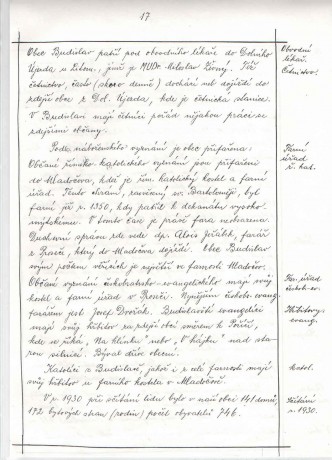 17
Obec Budislav patří pod obvodního lékaře do Dolního
Újezda u Litom., jímž je MUDr. Miloslav Živný. Též
četnictvo, často (skoro denně) dochází neb dojíždí do
zdejší obce z Dol. Újezda, kde je četnická stanice.
V Budislavi mají četníci pořád nějakou práci se
zdejšími občany.
Obvodní
lékař.
Četnictvo.
Podle náboženského vyznání je obec přifařena:
Občané římského katolického vyznání jsou přifařeni
do Mladočova, kdež je řím. katolický kostel a farní
úřad. Tento chrám, zasvěcený sv. Bartoloměji, byl
farní již r. 1350, kdy patřil k dekanátu vysoko-
mýtskému. V tomto čase je právě fara neobsazena.
Duchovní správu zde vede dp. Alois Jelínek, farář
z Proseče, který do Mladočova dojíždí. Obec Budislav
svým počtem věřících je největší ve farnosti Mladočov.
Farní
úřad
ř. kat.
Občané vyznání českobratrsko-evangelického mají svůj
kostel a farní úřad v Proseči. Nynějším českobr. evang.
farářem jest Josef Dvořák. Budislavští evangelíci
mají svůj hřbitov za zdejší obcí směrem k Poříčí,
kde se říká, "Na klínku" nebo "V hájku" nad sta-
rou silnicí. Býval dřív obecní.
Far. úřad
českob.-ev.
Hřbitovy:
evang.
Katolíci z Budislavi, jakož i z celé farnosti mají
svůj hřbitov u farního kostela v Mladočově.
katol.
V r. 1930 při sčítání lidu bylo v naší obci 141 domů,
172 bytových stran (rodin) počet obyvatelů 746.
Sčítání
r. 1930.